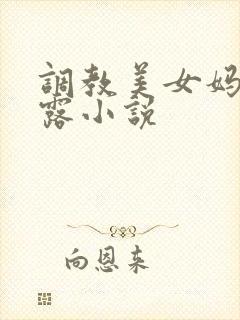 調教美女妈
露小説
向恩来